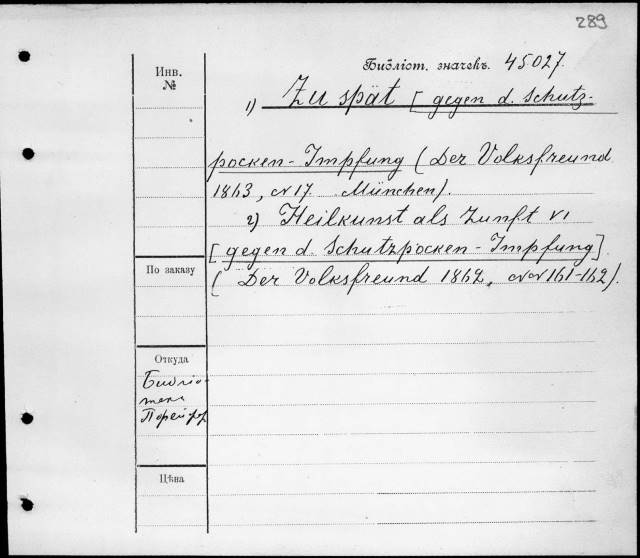 289
Библіот. значекъ. 45.027.
Инв.
№
1) Zu spät [gegen d. Schutz-
pocken-Impfung (Der Volksfreund
1863, № 17. München).
2) Heilkunst als Zunft VI
[gegen d. Schutzpocken-Impfung]
(Der Volksfreund 1862, №№ 161-162).
По заказу
Откуда
Библіо-
тека
Цѣна